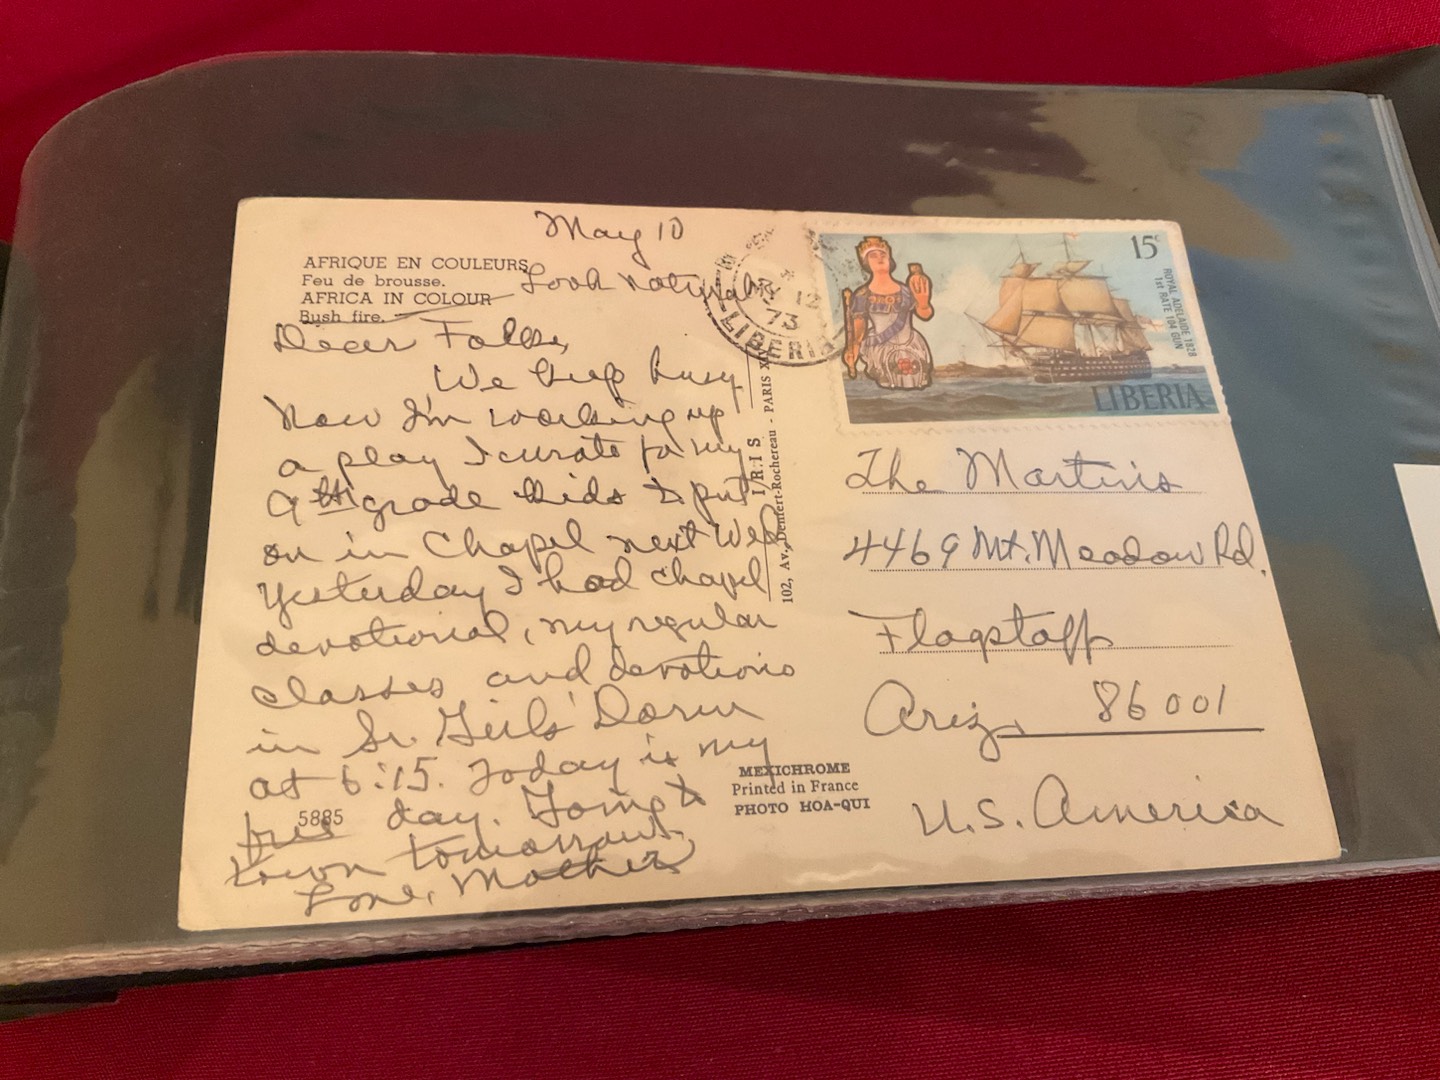 May 10
AFRIQUE EN COULEURS
Feu de brousse.
AFRICA IN COLOUR
Bush fire.
Look natural
Dear Folks,
We keep busy
Now I'm working up
a play I wrote for my
9th grade kids to put
on in Chapel next Wed.
Yesterday I had chapel
devotional, my regular
classes and devotions
in Sr. Girls' Dorm
at 6:15. Today is my
free day. Going to
town tomorrow.
Love, Mother
5885
MAY 12
73
LIBERIA
I R I S
102, Av. Denfert-Rochereau - PARIS
MEXICHROME
Printed in France
PHOTO HOA-QUI
15c
ROYAL ADELAIDE 1828
1st RATE 104 GUN
LIBERIA
The Martins
4469 Mt. Meadow Rd.
Flagstaff
Ariz. 86001
U.S. America